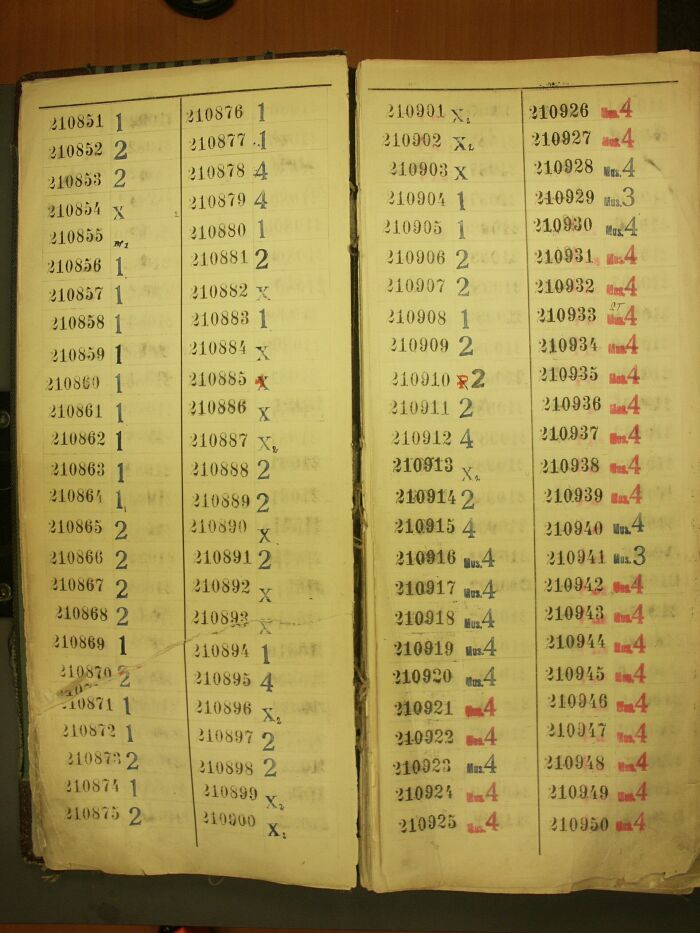 210851 1
210852 2
210853 2
210854 X
210855
210856 1
210857 1
210858 1
210859 1
210860 1
210861 1
210862 1
210863 1
210864 1
210865 2
210866 2
210867 2
210868 2
210869 1
210870 2
210871 1
210872 1
210873 2
210874 1
210875 2
210876 1
210877 1
210878 4
210879 4
210880 1
210881 2
210882 X
210883 1
210884 X
210885 X
210886 X
210887 X2
210888 2
210889 2
210890 X
210891 2
210892 X
210893 X
210894 1
210895 4
210896 X2
210897 2
210898 2
210899 X2
210900 X2
210901 X2
210902 X2
210903 X
210904 1
210905 1
210906 2
210907 2
210908 1
210909 2
210910 R 2
210911 2
210912 4
210913 X2
210914 2
210915 4
210916 Mus. 4
210917 Mus. 4
210918 Mus. 4
210919 Mus. 4
210920 Mus. 4
210921 Mus. 4
210922 Mus. 4
210923 Mus. 4
210924 Mus. 4
210925 Mus. 4
210926 Mus. 4
210927 Mus. 4
210928 Mus. 4
210929 Mus. 3
210930 Mus. 4
210931 Mus. 4
210932 Mus. 4
210933 Mus. 4
210934 Mus. 4
210935 Mus. 4
210936 Mus. 4
210937 Mus. 4
210938 Mus. 4
210939 Mus. 4
210940 Mus. 4
210941 Mus. 3
210942 Mus. 4
210943 Mus. 4
210944 Mus. 4
210945 Mus. 4
210946 Mus. 4
210947 Mus. 4
210948 Mus. 4
210949 Mus. 4
210950 Mus. 4